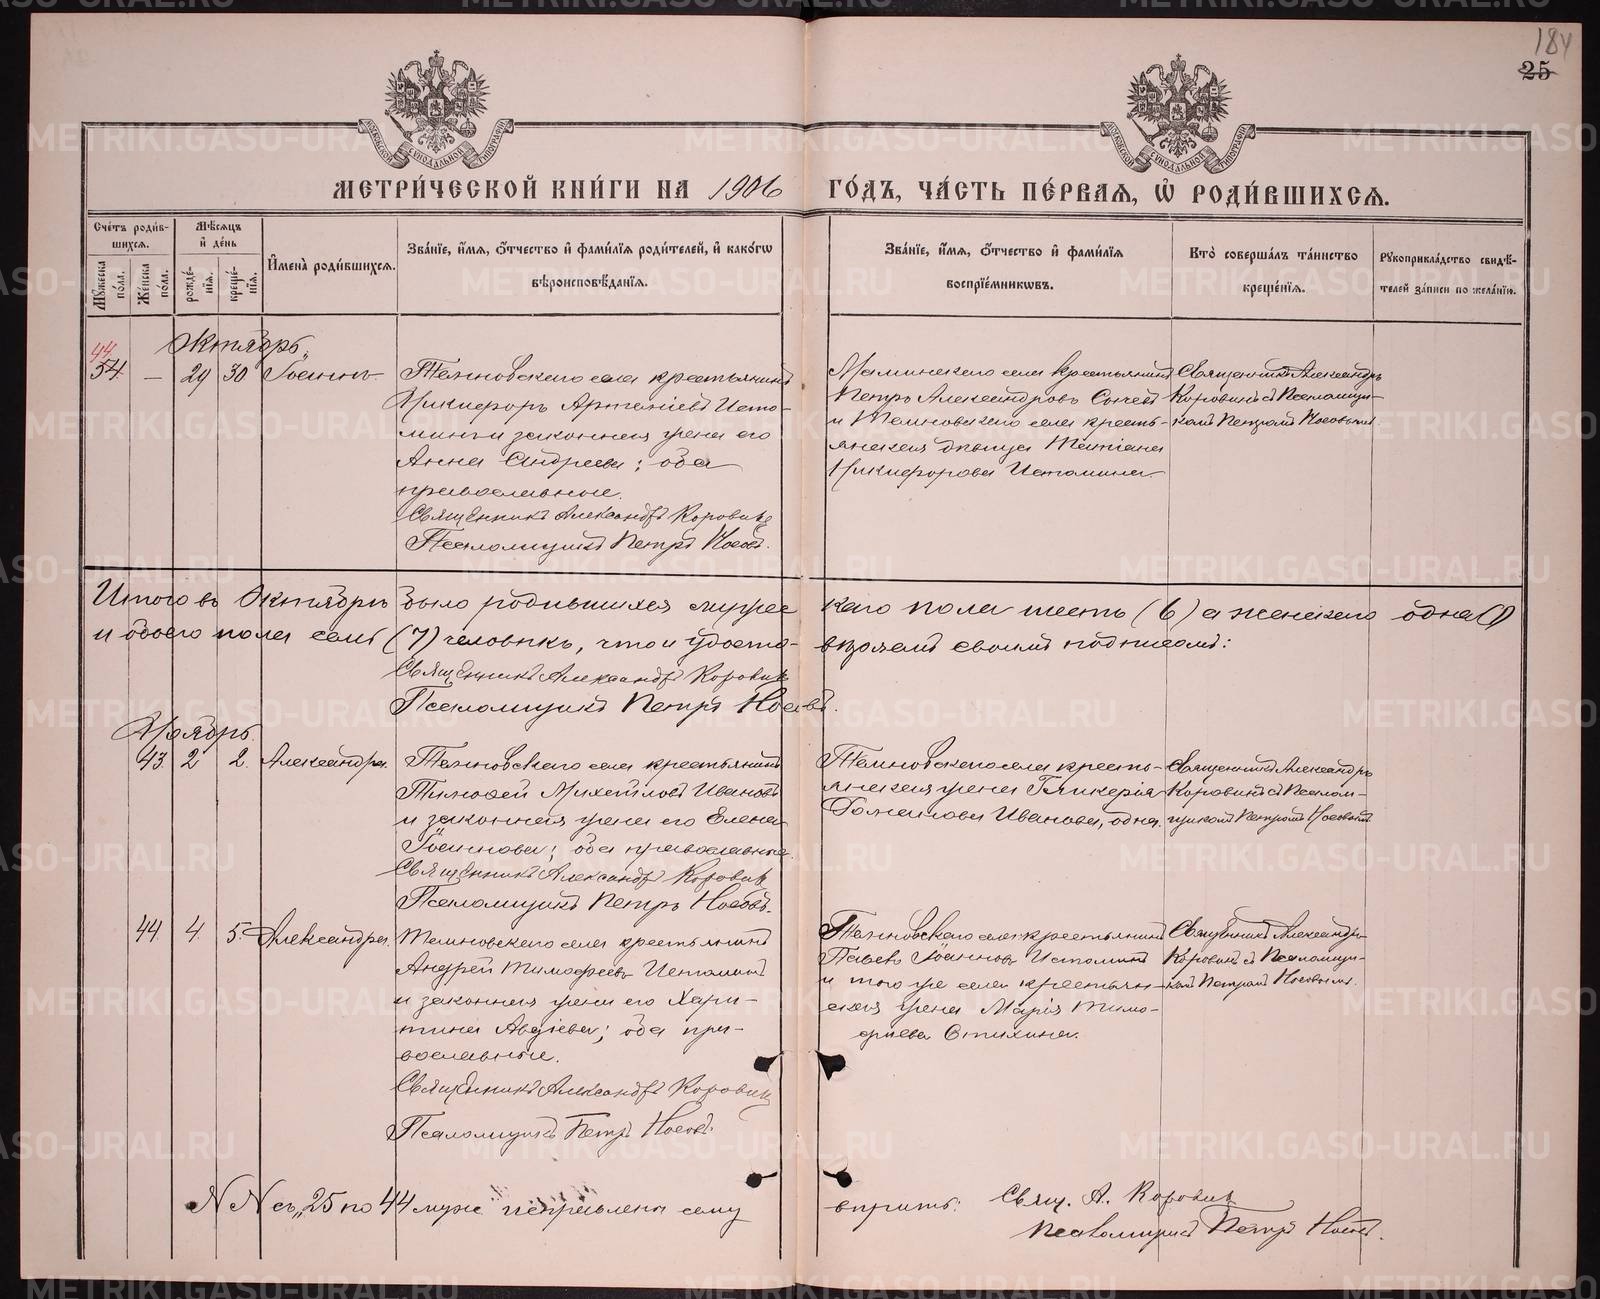 184
25
МОСКОВСКОЙ СѴНОДАЛЬНОЙ ТИПОГРАФІИ
МОСКОВСКОЙ СѴНОДАЛЬНОЙ ТИПОГРАФІИ
МЕТРИ́ЧЕСКОЙ КНИ́ГИ НА 1906 ГО́ДЪ, ЧА́СТЬ ПЕ́РВАЯ, Ѡ҆ РОДИ́ВШИХСЯ.
Сче́тъ роди́в-
шихся.
Мѣ́сяцъ
и҆ де́нь
И҆мена̀ роди́вшихся.
Зва́нїе, и҆́мя, ѻ҆́тчество и҆ фами́лїя роди́телей, и҆ како́гѡ
вѣроисповѣ́данїя.
Зва́нїе, и҆́мя, ѻ҆́тчество и҆ фами́лїя
воспрїе́мникѡвъ.
Кто̀ соверша́лъ та́инство
креще́нїя.
Рꙋкоприкла́дство свидѣ́-
телей за́писи по жела́нїю.
Мꙋ́жеска
по́ла.
Же́нска
по́ла.
рожде́-
нїя.
креще́-
нїя.
Октябрь.
44
54. — 29 30 Іоаннъ
Темновскаго села крестьянинъ
Никифоръ Артеміевъ Исто-
минъ и законная жена его
Анна Андреева; оба
православные.
Священникъ Александръ Коровинъ
Псаломщикъ Петръ Носовъ.
Маминскаго села крестьянинъ
Петръ Александровъ Сычевъ
и Темновскаго села кресть-
янская дѣвица Татіана
Никифорова Истомина.
Священникъ Александръ
Коровинъ съ Псаломщи-
комъ Петромъ Носовымъ.
Итого въ Октябрѣ было родившихся мужес каго пола шесть (6) а женскаго одна (1)
и обоего пола семь (7) человѣкъ, что и удосто- вѣряемъ своимъ подписомъ:
Священникъ Александръ Коровинъ
Псаломщикъ Петръ Носовъ.
Ноябрь.
43. 2 2. Александра.
Темновскаго села крестьянинъ
Тимофей Михайловъ Ивановъ
и законная жена его Елена
Іоаннова; оба православные.
Священникъ Александръ Коровинъ
Псаломщикъ Петръ Носовъ.
Темновскаго села кресть-
янская жена Гликерія
Иванова, одна.
Священникъ Александръ
Коровинъ съ Псалом-
щикомъ Петромъ Носовымъ
44. 4. 5. Александра.
Темновскаго села крестьянинъ
Андрей Тимофеевъ Истоминъ
и законная жена его Хари-
тина Авдіева; оба пра-
вославные.
Священникъ Александръ Коровинъ
Псаломщикъ Петръ Носовъ.
Темновскаго села крестьянинъ
Павелъ Іоанновъ Истоминъ
и того же села крестьян-
ская жена Марія Тимо-
феева Стихина.
Священникъ Александръ
Коровинъ съ Псаломщи-
комъ Петромъ Носовымъ.
NN съ „25 по 44 муж исправлена сему вѣрить: Свящ. А. Коровинъ
Псаломщикъ Петръ Носовъ.
METRIKI.GASO-URAL.RU